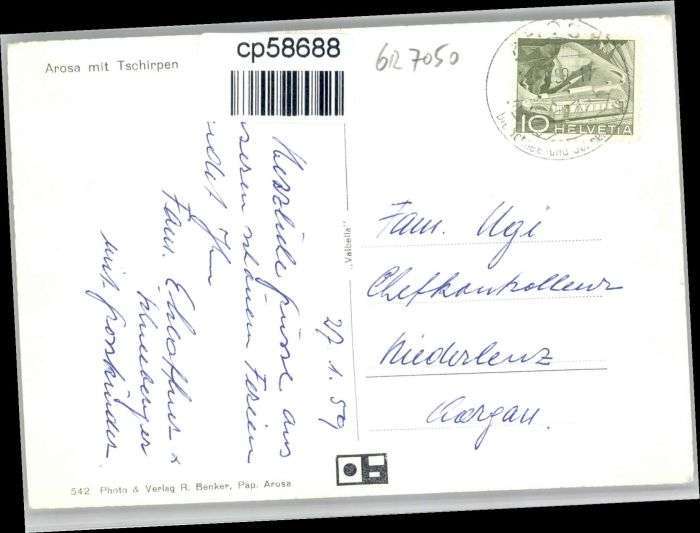 Arosa mit Tschirpen
cp58688
GR 7050
10 HELVETIA
27. 1. 59
Herzliche Grüsse aus
schönen Ferien
Fam.
Schneeberger
mit Grosskinder
"Valbella"
Fam. Ugi
Chefkontrolleur
Niederlenz
Aargau.
542 Photo & Verlag R. Benker, Pap. Arosa